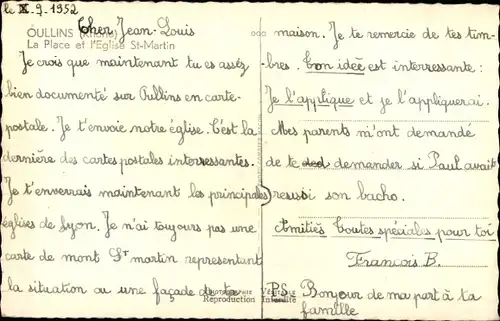 le X-9-1952
Cher Jean-Louis
OULLINS (Rhône)
La Place et l'Eglise St-Martin
Je crois que maintenant tu es assez
bien documenté sur Oullins en carte-
postale. Je t'envoie notre église. C'est la
dernière des cartes postales interessantes.
Je t'enverrais maintenant les principales
églises de Lyon. Je n'ai toujours pas une
carte de mont St martin representant
la situation ou une façade de ta
Reproduction Interdite
maison. Je te remercie de tes tim-
bres. Ton idée est interessante:
Je l'applique et je l'appliquerai.
Mes parents m'ont demandé
de te demander si Paul avait
reussi son bacho.
Amitiés toutes spéciales pour toi
François B.
PS. Bonjour de ma part à ta
famille